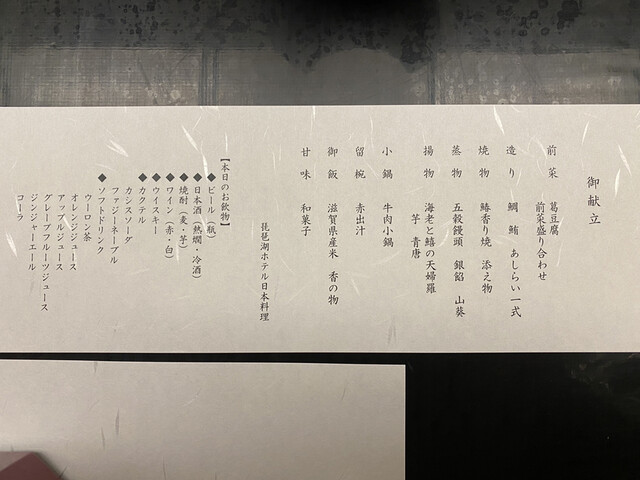 御献立
前菜 葛豆腐
前菜盛り合わせ
造り 鯛 鮪 あしらい一式
焼物 鰆香り焼 添え物
蒸物 五穀饅頭 銀餡 山葵
揚物 海老と鱚の天婦羅
芋 青唐
小鍋 牛肉小鍋
留椀 赤出汁
御飯 滋賀県産米 香の物
甘味 和菓子
琵琶湖ホテル日本料理
【本日のお飲物】
◆ビール(瓶)
◆日本酒(熱燗・冷酒)
◆焼酎(麦・芋)
◆ワイン(赤・白)
◆ウイスキー
◆カクテル
カシスソーダ
ファジーネーブル
◆ソフトドリンク
ウーロン茶
オレンジジュース
アップルジュース
グレープフルーツジュース
ジンジャーエール
コーラ